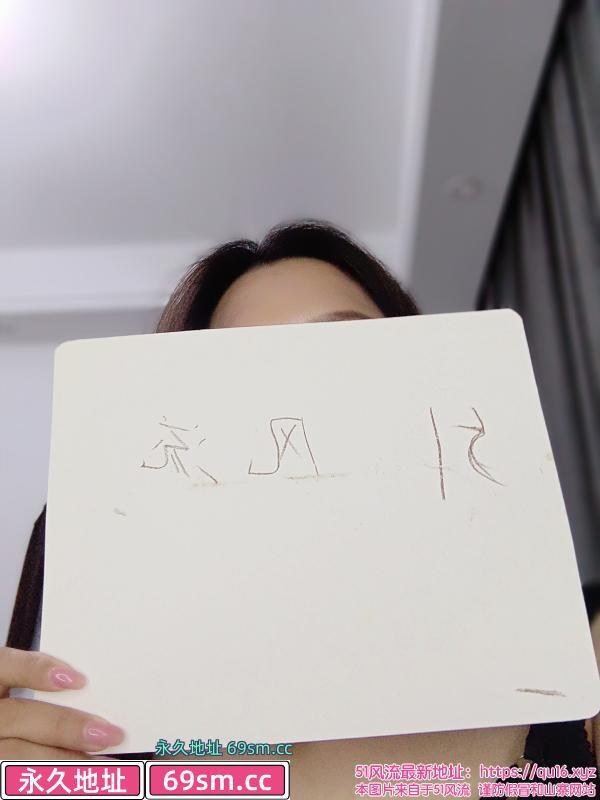 51风流
永久地址 69sm.cc
永久地址 69sm.cc
51风流最新地址: https://qu16.xyz
本图片来自于51风流 谨防假冒和山寨网站